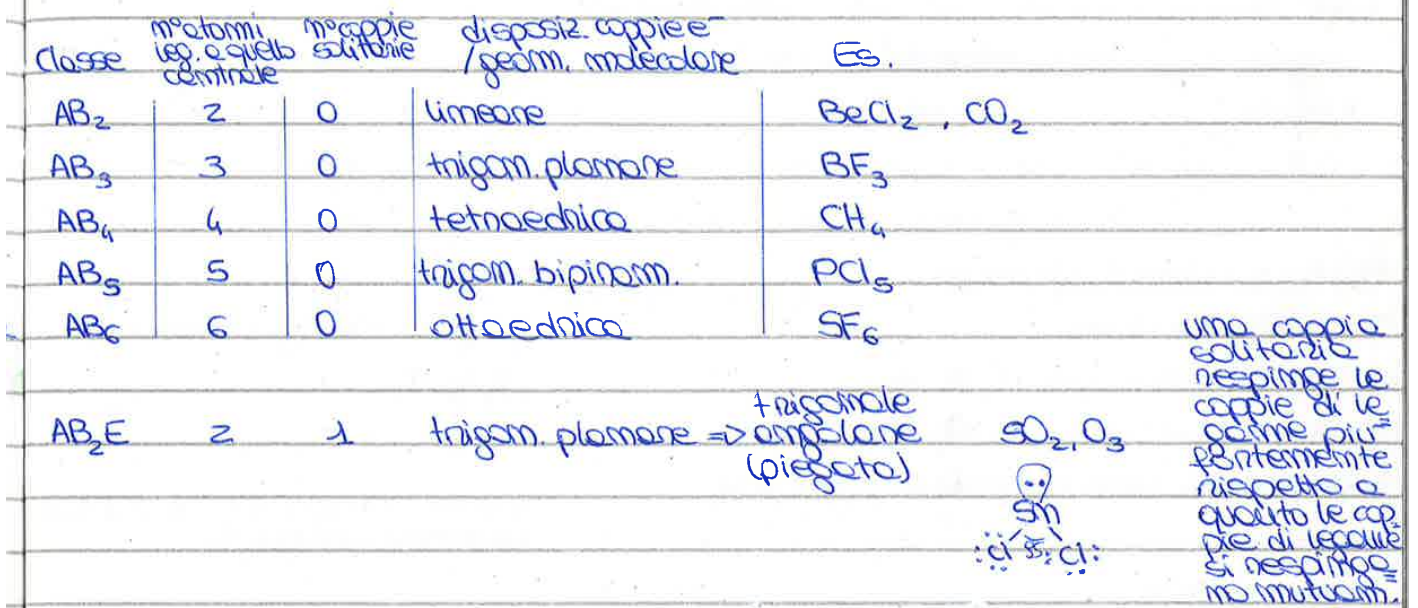 Classe n°atomi leg. a quello centrale n°coppie solitarie disposiz. coppie e⁻ /geom. molecolare Es.
AB₂ 2 0 lineare BeCl₂, CO₂
AB₃ 3 0 trigon. planare BF₃
AB₄ 4 0 tetraedrica CH₄
AB₅ 5 0 trigon. bipiram. PCl₅
AB₆ 6 0 ottaedrica SF₆
AB₂E 2 1 trigon. planare => trigonale angolare (piegata) SO₂, O₃
Sn
:Cl Cl:
una coppia
solitaria
respinge le
coppie di le=
game più
fortemente
rispetto a
quanto le cop
pie di legame
si respingo=
no mutuam.